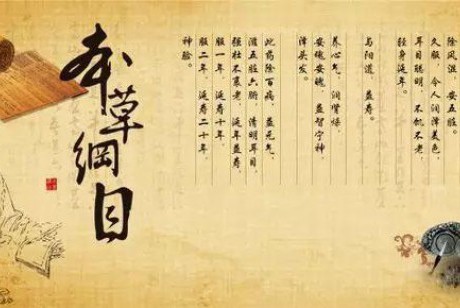 除风湿，安五脏。
久服，令人润泽美色，
耳目聪明，不饥不老
轻身延年。
与阳道，益寿。
养心气，润肾燥，
安魂安魄，益智宁神，
泽头发。
此药除百病，益元气，
滋五脏六腑，清明耳目，
强壮不衰老，延年益寿，
服一年，延寿十年，
服二年，延寿二十年，
神验。
本草綱目